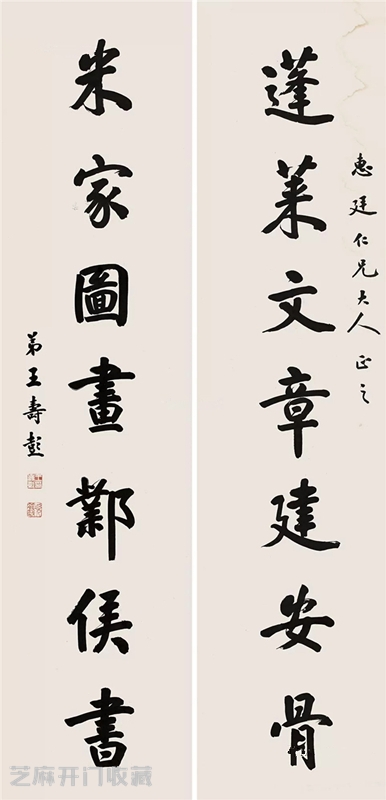 惠廷仁兄大人正之
蓬莱文章建安骨
米家圖畫鄴侯書
弟王壽彭
芝麻开门收藏